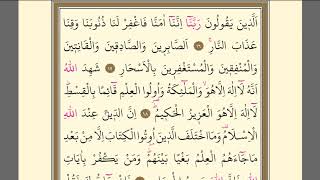 اَلَّذٖينَ يَقُولُونَ رَبَّنَٓا اِنَّنَٓا اٰمَنَّا فَاغْفِرْ لَنَا ذُنُوبَنَا وَقِنَا
عَذَابَ النَّارِۚ ﴿١٦﴾ اَلصَّابِرٖينَ وَالصَّادِقٖينَ وَالْقَانِتٖينَ
وَالْمُنْفِقٖينَ وَالْمُسْتَغْفِرٖينَ بِالْاَسْحَارِ ﴿١٧﴾ شَهِدَ اللّٰهُ
اَنَّهُ لَٓا اِلٰهَ اِلَّا هُوَۙ وَالْمَلٰٓئِكَةُ وَاُو۬لُوا الْعِلْمِ قَٓائِمًا بِالْقِسْطِۜ
لَٓا اِلٰهَ اِلَّا هُوَ الْعَزٖيزُ الْحَكٖيمُۜ ﴿١٨﴾ اِنَّ الدّٖينَ عِنْدَ اللّٰهِ
الْاِسْلَامُ وَمَا اخْتَلَفَ الَّذٖينَ اُو۫تُوا الْكِتَابَ اِلَّا مِنْ بَعْدِ
مَا جَٓاءَهُمُ الْعِلْمُ بَغْيًا بَيْنَهُمْۜ وَمَنْ يَكْفُرْ بِاٰيَاتِ